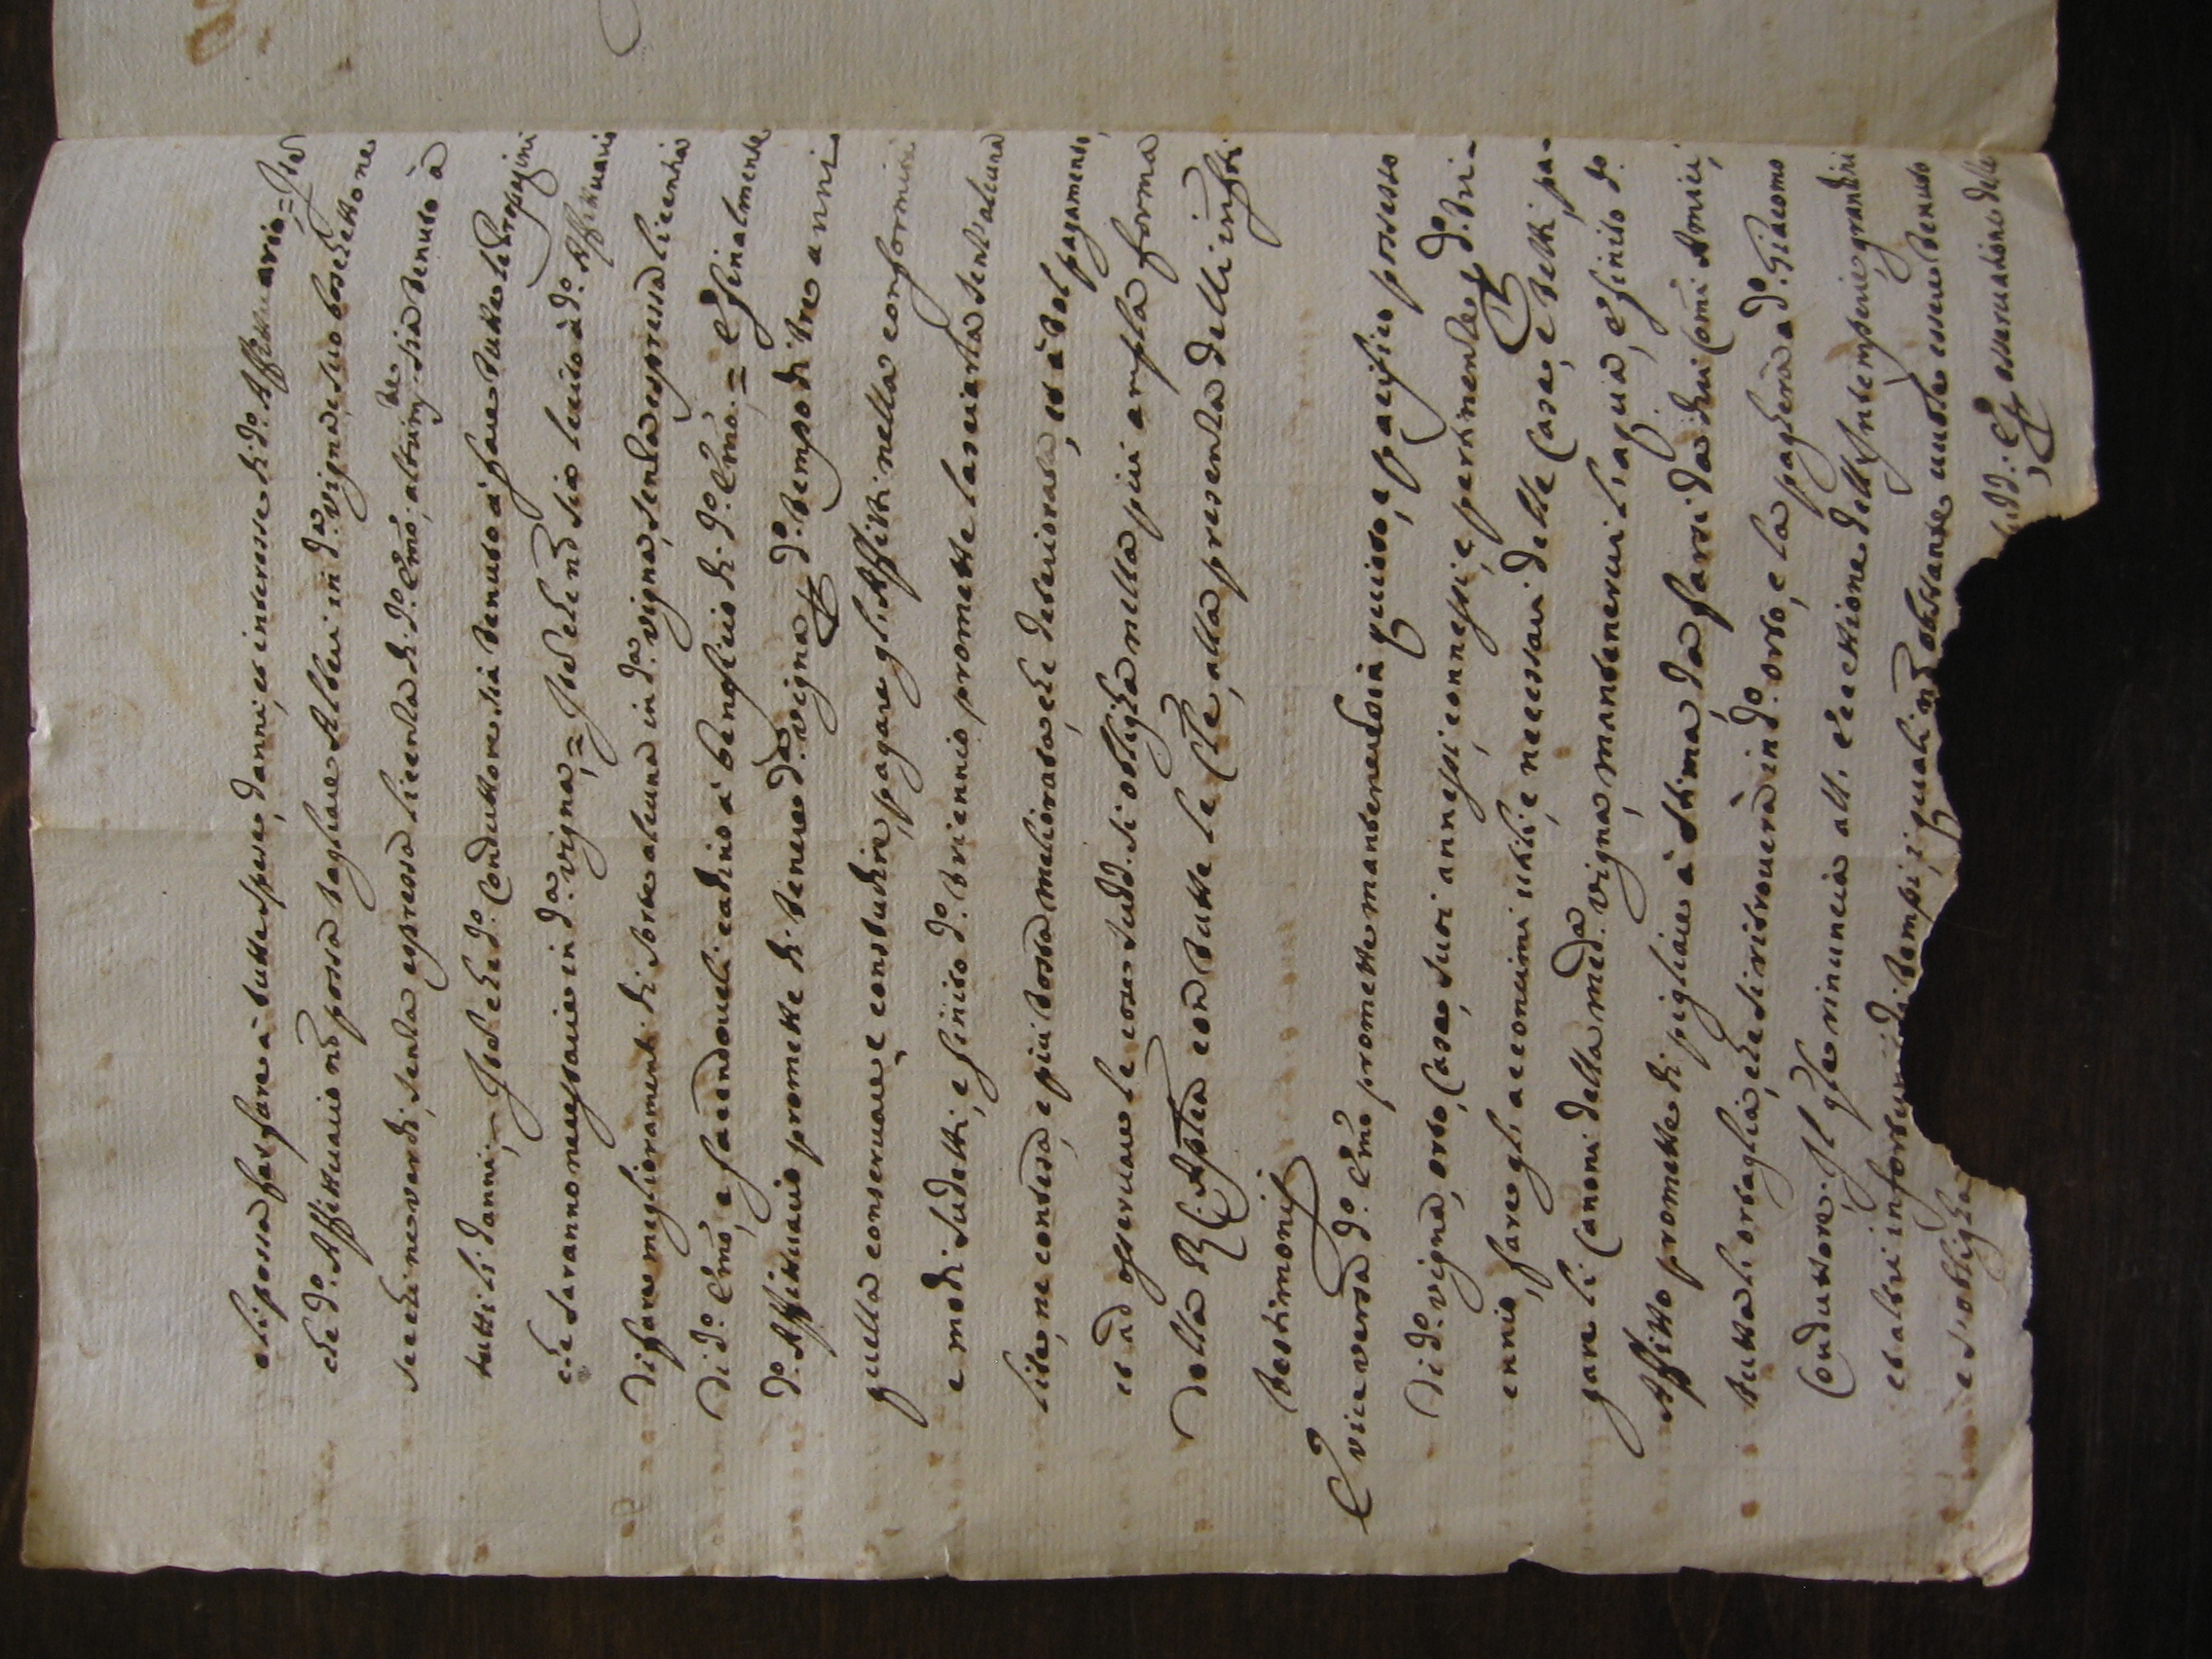 e li possa far fare à tutte spese, danni, et interesse di d.o Affittuario = Itē
che d.o Affittuario nō possa tagliare Alberi in d.a vigna, e suo boschetto ne
secchi ne verdi, senza espressa licenza di d.o Emō, altrim.te sia tenuto à
tutti li danni, = Itē che d.o Conduttore sia tenuto à fare tutte le propagini
che saranno necessarie in d.a vigna, = Itē che nō sia lecito à d.o Affittuario
di fare meglioramenti di sorte alcuna in d.a vigna, senza espressa licentia
di d.o Emō, e facendoveli cedino à benefitio di d.o Emō. = E finalmente
d.o Affittuario promette di tenere d.a vigna p d.o tempo di tre anni
quella conservare, e constudire, pagare gli Affitti nella conformità
e modi sudetti, e finito d.o triennio promette lasciarla senz'alcuna
lite, ne contesa, e più tosto meliorata, che deteriorata, et à tal pagamento,
et ad osservare le cose sudd. si obliga nella più ampla forma
della R. C. Aplica con tutte le Cle, alla presenza delli infrī
testimonij
E vice versa d.o Emō promette mantenerlo in quieto, e pacifico possesso
di d.o vigna, orto, Case, suoi annessi, connessi, e pertinenze p d.o tri-
ennio, fare gli acconcimi utili, e necessari delle Case, e tetti, pa-
gare li Canoni della med.a vigna, mantenervi l'aqua, e finito d.o
Affitto promette di pigliare à stima, da farsi da dui Comī Amici,
tutta l'ortaglia, che si ritrovera in d.o orto, e la pagherà a d.o Giacomo
Conduttore. Il qle rinuncia all' eccettione dell' Intemperie, grandini
et altri infortunij di tempi, i quali nō obstante vuole essere tenuto
e s'obliga sudd. E p osservatione delle